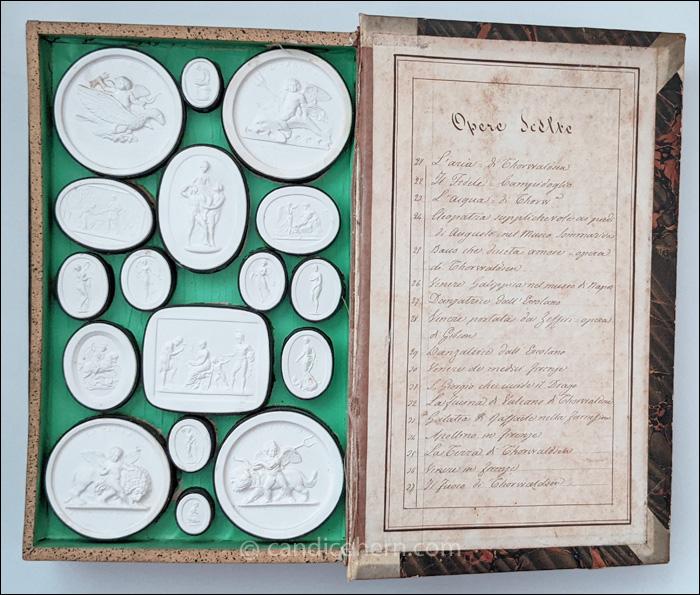 Opere Scelte
21 L'aria - di Thorvaldsen
22 Il Fedele - Campidoglio
23 L'Acqua - di Thorw.n
24 Cleopatra supplichevole ai piedi
di Augusto, nel Museo Sommariva
25 Bacco che disseta amore - opera
di Thorvaldsen
26 Venere Callipiga nel museo di
27 Danzatrice dall' Ercolano
28 Venere portata da Zeffiri - opera
di Gibson
29 Danzatrice dall' Ercolano
30 Venere de medici firenze
31 S. Giorgio che uccide il Drago
32 La fucina di Vulcano di Thorvaldsen
33 Galatea di Raffaele nella
34 Apollino in firenze
35 La Terra di Thorvaldsen
36 Venere in firenze
37 Il fuoco di Thorvaldsen
© candicehern.com